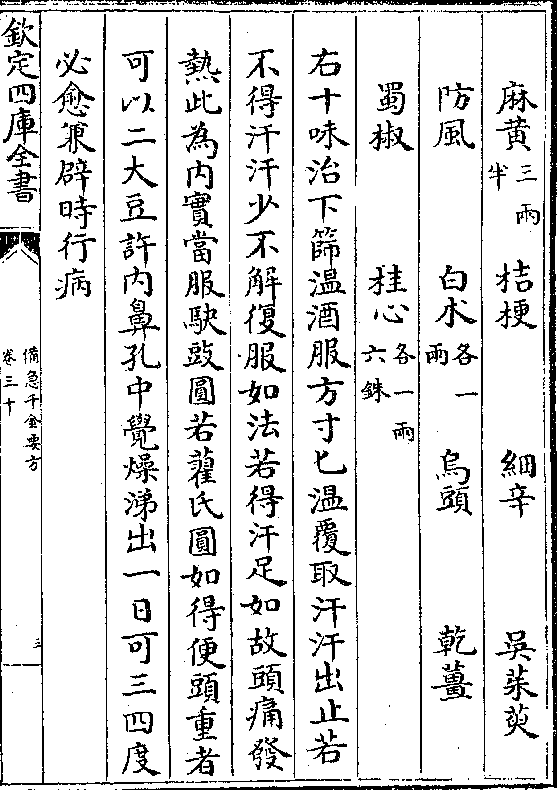 麻黄三兩半 桔梗 細辛 吳茱萸
防風 白朮各一兩 烏頭 乾薑
蜀椒 桂心各一兩六銖
右十味治下篩温酒服方寸匕温覆取汗汗出止若
不得汗汗少不解復服如法若得汗足如故頭痛發
熱此為内實當服駃豉圓若藿氏圓如得便頭重者
可以二大豆許内鼻孔中覺燥涕出一日可三四度
必愈兼辟時行病
欽定四庫全書
備急千金要方
卷三十
三